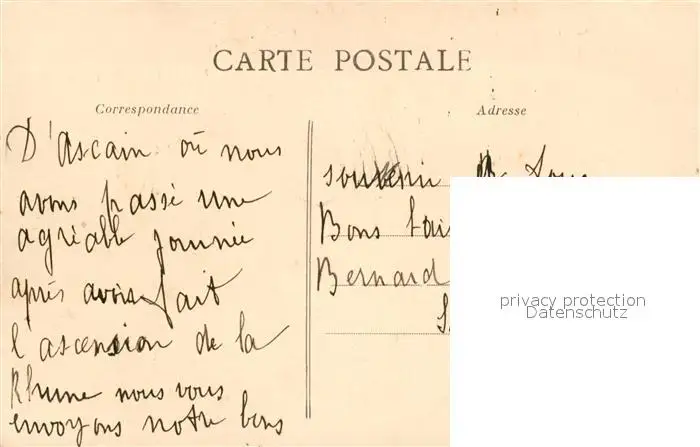 CARTE POSTALE
Correspondance
D'Ascain où nous
avons passé une
agréable journée
après avoir fait
l'ascension de la
Rhune nous vous
envoyons notre bons
Adresse
souvenir
Bons
Bernard
privacy protection
Datenschutz